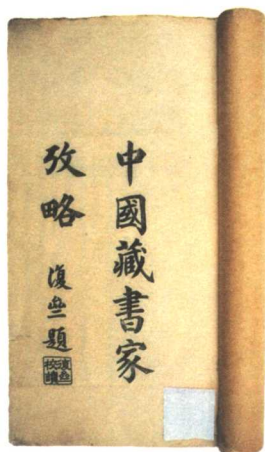 中國藏書家
攷略
復亝題